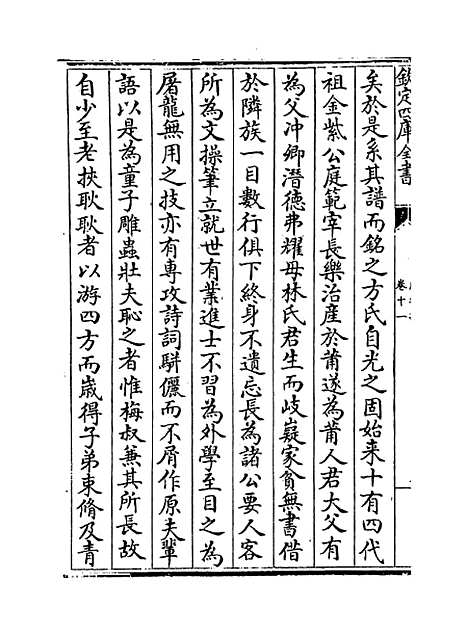 欽定四庫全書
卷十一
矣於是系其譜而銘之方氏自光之固始来十有四代
祖金紫公庭範宰長樂治産於莆遂為莆人君大父有
為父冲卿潛徳弗耀母林氏君生而岐嶷家貧無書借
於隣族一目數行俱下終身不遺忘長為諸公要人客
所為文操筆立就世有業進士不習為外學至目之為
屠龍無用之技亦有專攻詩詞駢儷而不屑作原夫輩
語以是為童子雕蟲壮夫恥之者惟梅叔兼其所長故
自少至老挾耿耿者以游四方而歳得子弟束脩及青